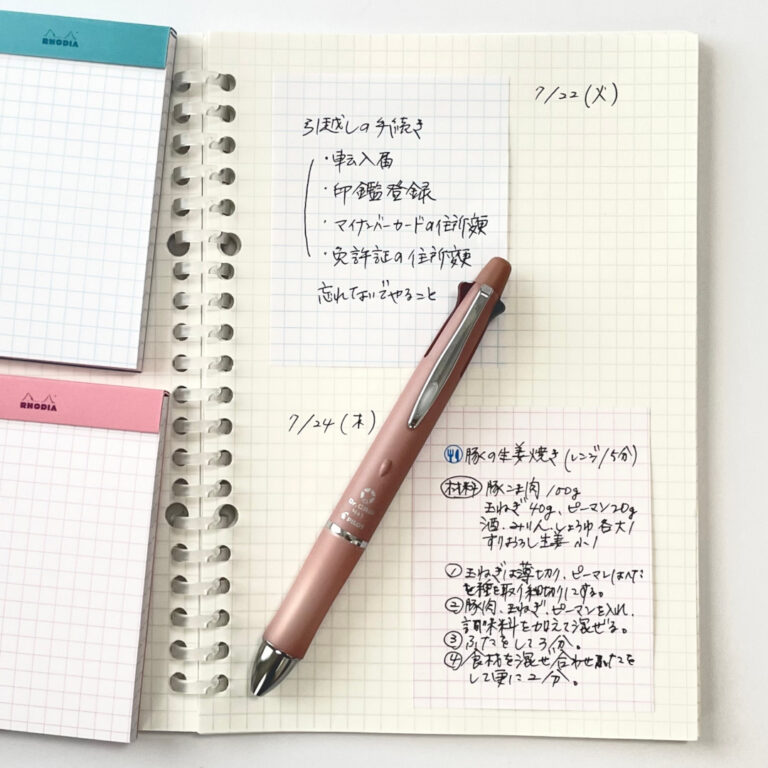 RHODIA
RHODIA
7/22(火)
引越しの手続き
・転入届
・印鑑登録
・マイナンバーカードの住所変更
・免許証の住所変更
忘れないでやること
7/24(木)
豚の生姜焼き(レンジ/5分)
材料 豚こま肉 100g
玉ねぎ40g、ピーマン20g
酒、みりん、しょうゆ 各大1
すりおろし生姜 小1
① 玉ねぎは薄切り、ピーマンはヘタ
を種を取り細切りにする。
② 豚肉、玉ねぎ、ピーマンを入れ、
調味料を加えて混ぜる。
③ ふたをして3分。
④ 食材を混ぜ合わせふたを
して更に2分。
Dr. GRIP
4+1
PILOT